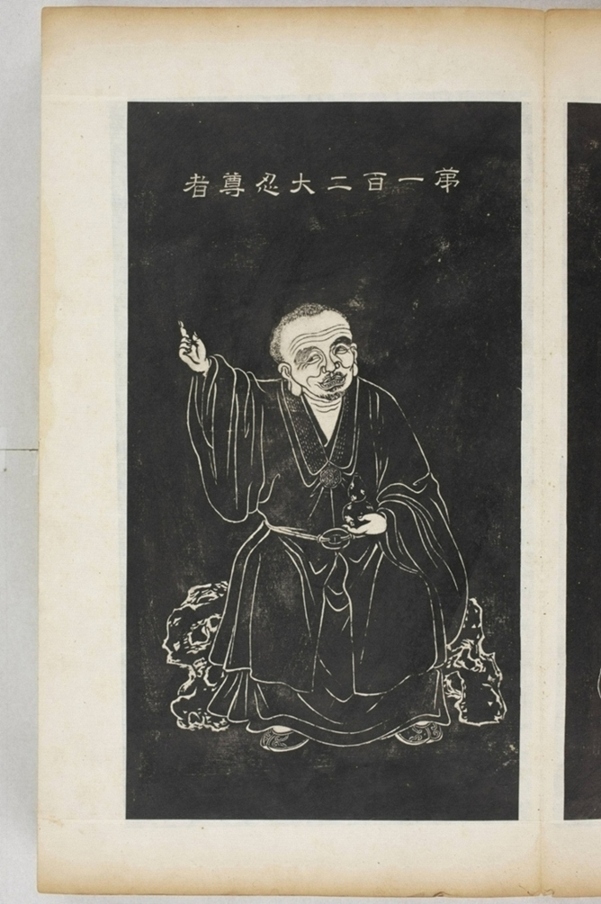 第一百二大忍尊者